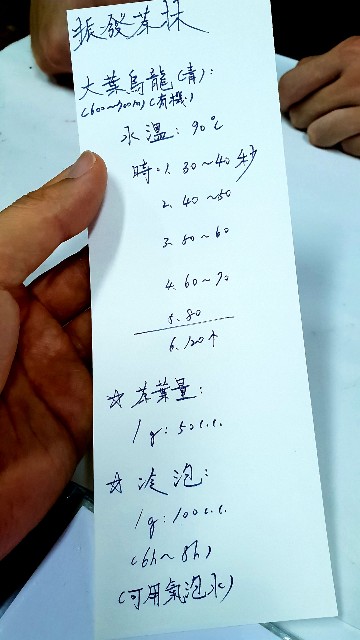 振發茶抹
大葉烏龍(青):
(600~700m)(有機)
水溫: 90℃
時: 1. 30~40秒
2. 40~50
3. 50~60
4. 60~70
5. 80
6. 120↑
☆茶葉量:
1g: 50c.c.
☆冷泡:
1g: 100c.c.
(6h~8h)
(可用氣泡水)